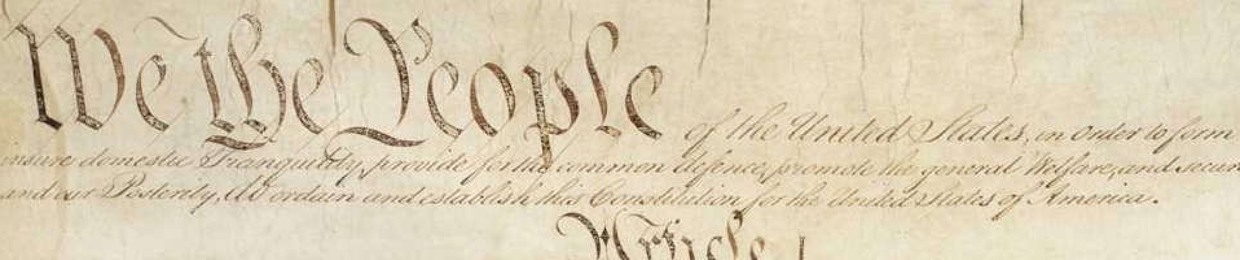 We the People of the United States, in Order to form
insure domestic Tranquility, provide for the common defence, promote the general Welfare, and secure
and our Posterity, do ordain and establish this Constitution for the United States of America.
Article I